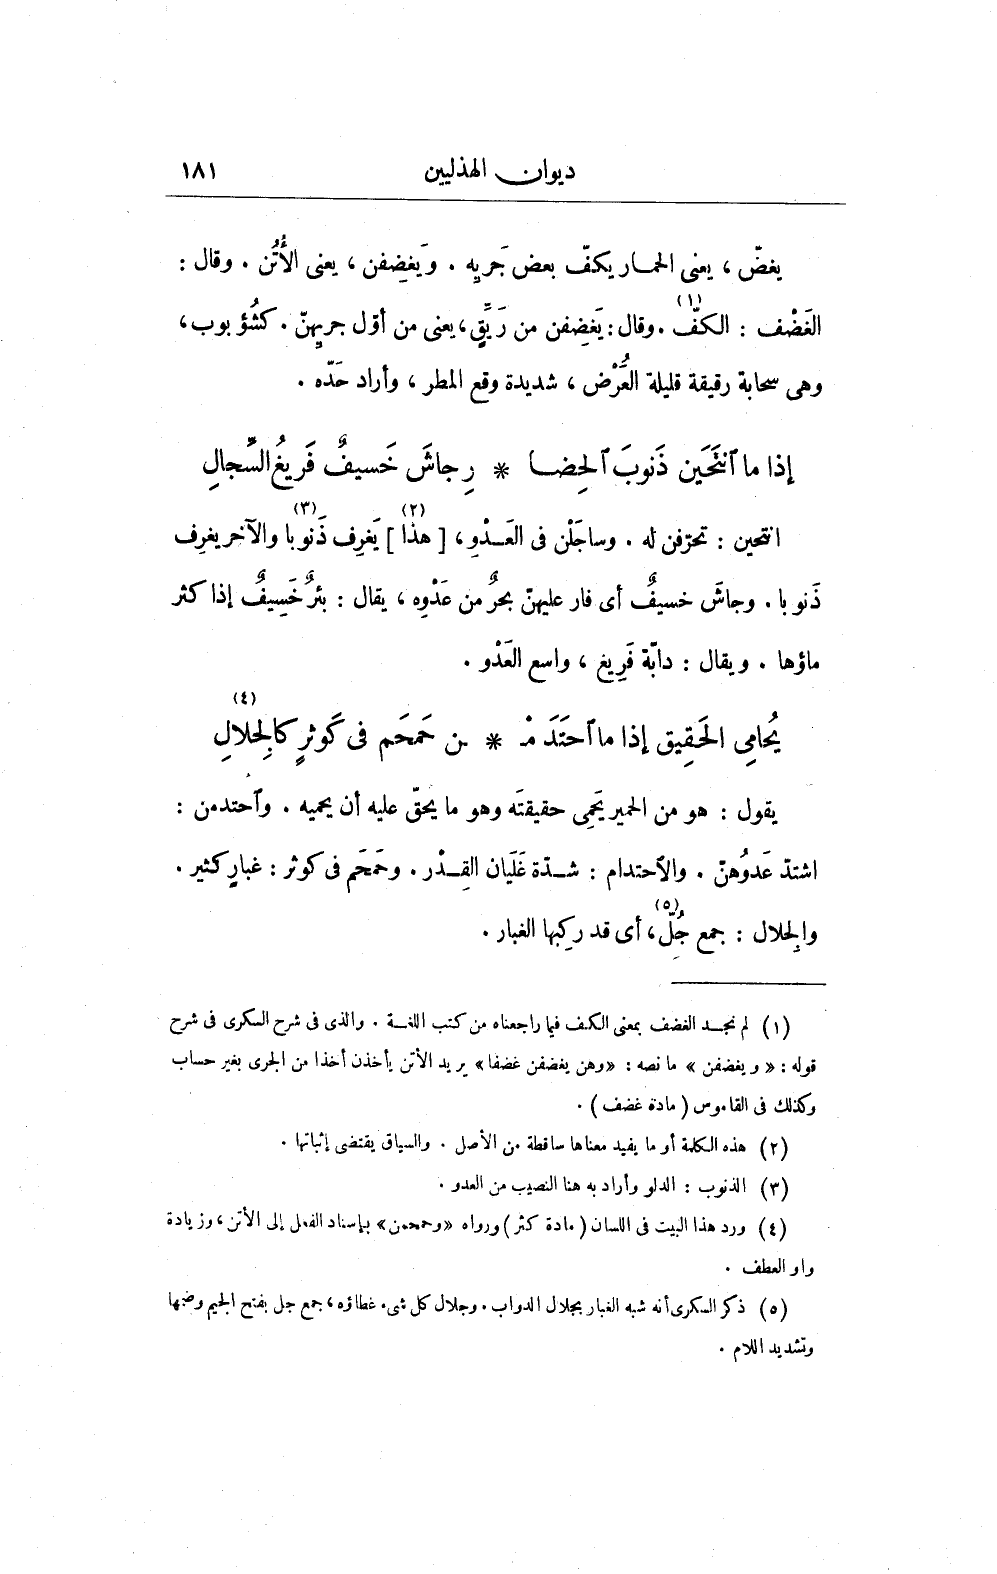 ديوان الهذليين ١٨١
يغضّ ، يعنى الحمار يكفّ بعض جَريِه . ويَغضِفن ، يعنى الأُتُن . وقال :
الغَضْف : الكفّ (١) . وقال : يَغضِفن من رَيِّقٍ ، يعنى من أوّل جريهِنّ . كشُؤبوب ،
وهى سحابة رقيقة قليلة العُرْض ، شديدة وقع المطر ، وأراد حَدّه .
إذا ما ٱنتَحَين ذَنوبَ ٱلحِضا * رِ جاشَ خَسيفٌ فَريغُ السِّجالِ
انتحين : تحرّفن له . وساجَلْن فى العَدْوِ ، [ هذا (٢) ] يَغرِف ذَنوبا (٣) والآخر يغرِف
ذَنوبا . وجاشَ خسيفٌ أى فار عليهنّ بحرٌ من عَدْوِه ، يقال : بئرٌ خَسِيفٌ إذا كثر
ماؤها . ويقال : دابّة فَرِيغ ، واسع العَدْو .
يُحامِى الحَقِيق إذا ما ٱحتَدَمْـ * ـن حَمحَم فى كَوثرٍ كالجِلالِ (٤)
يقول : هو من الحمير يَحمِى حقيقتَه وهو ما يحقّ عليه أن يحميه . وٱحتدمن :
اشتدّ عَدوُهنّ . والٱحتدام : شدّة غَلَيان القِدْر . وحَمحَم فى كوثر : غبارٍ كثير .
والجِلال : جمع جُلّ (٥) ، أى قد ركِبها الغبار .
(١) لم نجد الغضف بمعنى الكف فيما راجعناه من كتب اللغة . والذى فى شرح السكرى فى شرح
قوله : « ويغضفن » ما نصه : «وهن يغضفن غضفا» يريد الأتن يأخذن أخذا من الجرى بغير حساب
وكذلك فى القاموس ( مادة غضف ) .
(٢) هذه الكلمة أو ما يفيد معناها ساقطة من الأصل . والسياق يقتضى إثباتها .
(٣) الذنوب : الدلو وأراد به هنا النصيب من العدو .
(٤) ورد هذا البيت فى اللسان ( مادة كثر ) ورواه «وحمحمن» بإسناد الفعل إلى الأتن ، وزيادة
واو العطف .
(٥) ذكر السكرى أنه شبه الغبار بجلال الدواب . وجلال كل شىء غطاؤه ، جمع جل بفتح الجيم وضمها
وتشديد اللام .